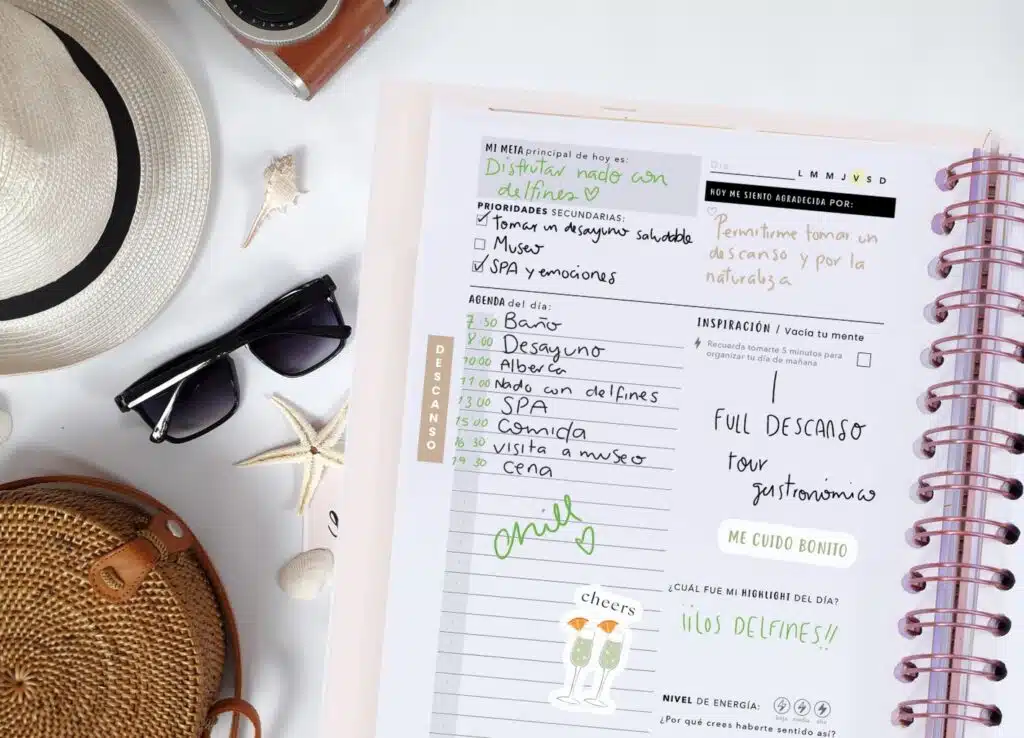 MI META principal de hoy es:
Disfrutar nado con
delfines
PRIORIDADES SECUNDARIAS:
tomar un desayuno saludable
Museo
SPA y emociones
Día
L M M J V S D
HOY ME SIENTO AGRADECIDA POR:
Permitirme tomar un
descanso y por la
naturaliza
AGENDA del día:
7 30 Baño
8 00 Desayuno
10:00 Alberca
11 00 Nado con delfines
13 00 SPA
15 00 Comida
16 30 visita a museo
19 30 cena
chill
DESCANSO
cheers
INSPIRACIÓN / Vacia tu mente
Recuerda tomarte 5 minutos para
organizar tu día de mañana
FULL DESCANSO
tour
gastronómico
ME CUIDO BONITO
¿CUÁL FUE MI HIGHLIGHT DEL DÍA?
¡¡LOS DELFINES!!
NIVEL DE ENERGÍA:
bajo medio alto
¿Por qué crees haberte sentido así?